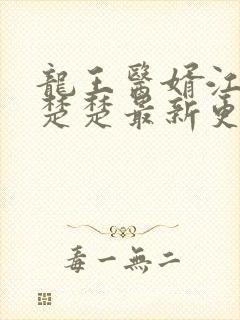 龍王醫婿江
楚楚最新更
毒一無二